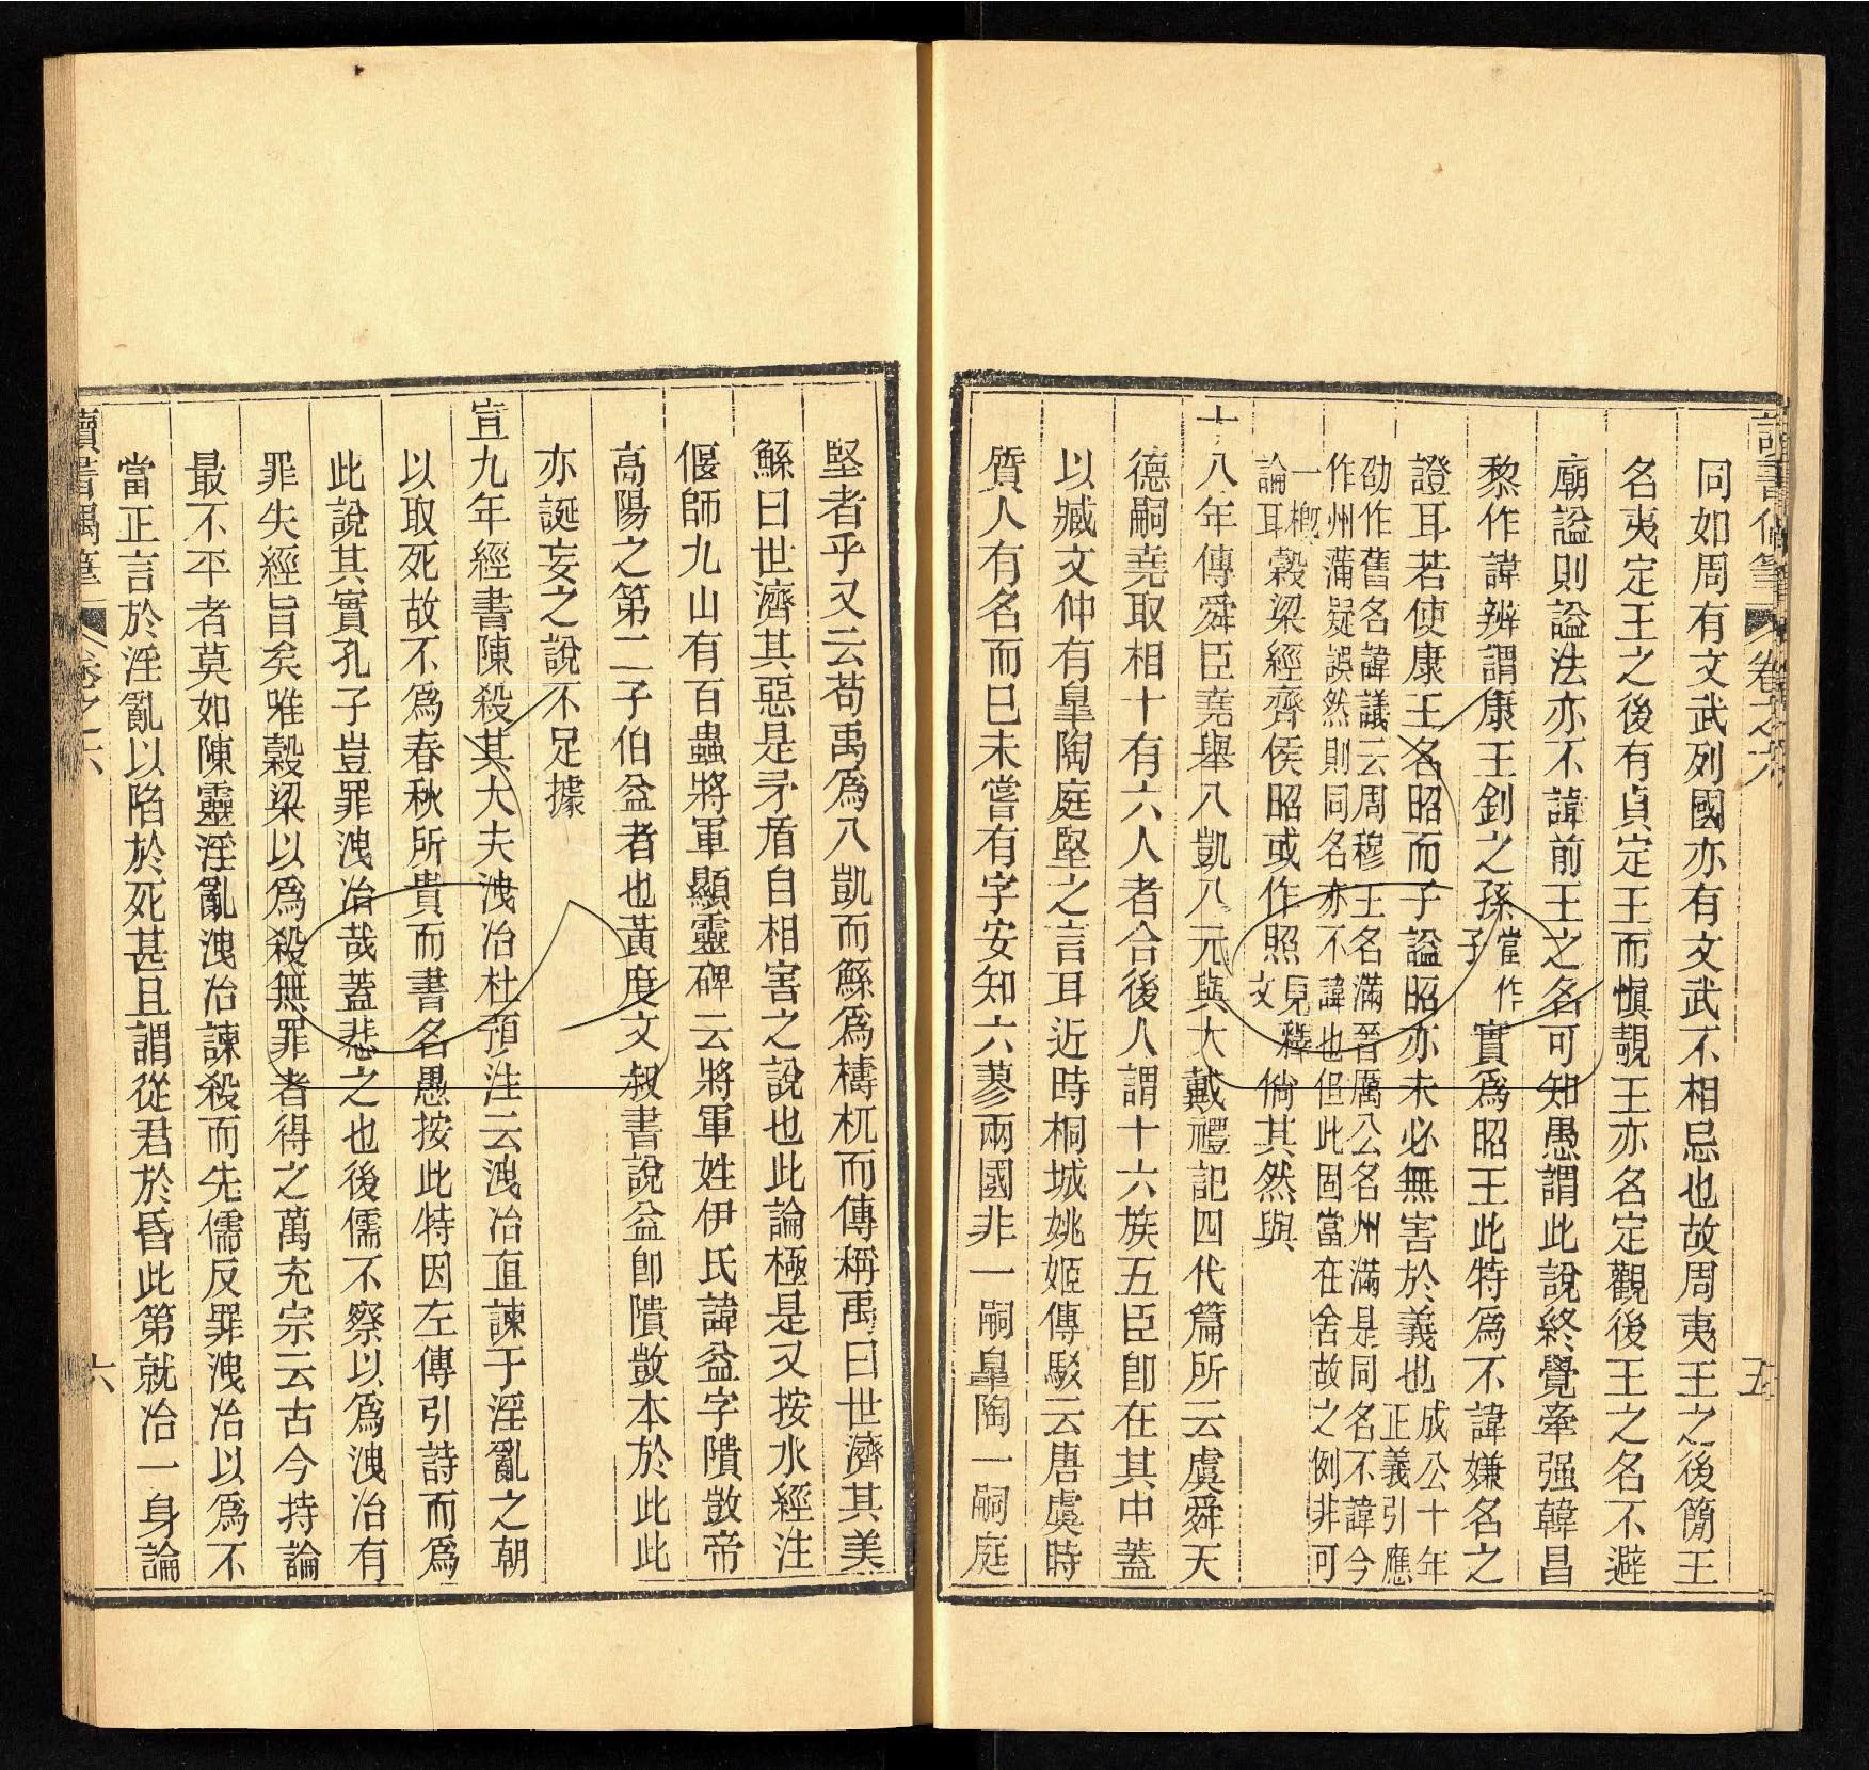 讀書偶筆 卷之六 五
同如周有文武列國亦有文武不相忌也故周夷王之後簡王
名夷定王之後有貞定王而愼靚王亦名定觀後王之名不避
廟謚則謚法亦不諱前王之名可知愚謂此說終覺牽强韓昌
黎作諱辨謂康王釗之孫當作子實爲昭王此特爲不諱嫌名之
證耳若使康王名昭而子謚昭亦未必無害於義也成公十年正義引應
劭作舊名諱議云周穆王名滿晉厲公名州滿是同名不諱今
作州蒲疑誤然則同名亦不諱也但此固當在舍故之例非可
一槪論耳穀梁經齊侯昭或作照見釋文倘其然與
十八年傳舜臣堯舉八凱八元與大戴禮記四代篇所云虞舜天
德嗣堯取相十有六人者合後人謂十六族五臣卽在其中蓋
以臧文仲有皐陶庭堅之言耳近時桐城姚姬傳駁云唐虞時
質人有名而已未嘗有字安知六蓼兩國非一嗣皐陶一嗣庭
堅者乎又云苟禹爲八凱而鯀爲檮杌而傳稱禹曰世濟其美
鯀曰世濟其惡是矛盾自相害之說也此論極是又按水經注
偃師九山有百蟲將軍顯靈碑云將軍姓伊氏諱益字隤敳帝
高陽之第二子伯益者也黃度文叔書說益卽隤敳本於此此
亦誕妄之說不足據
宣九年經書陳殺其大夫洩冶杜預注云洩冶直諫于淫亂之朝
以取死故不爲春秋所貴而書名愚按此特因左傳引詩而爲
此說其實孔子豈罪洩冶哉蓋悲之也後儒不察以爲洩冶有
罪失經旨矣唯穀梁以爲殺無罪者得之萬充宗云古今持論
最不平者莫如陳靈淫亂洩冶諫殺而先儒反罪洩冶以爲不
當正言於淫亂以陷於死甚且謂從君於昏此第就冶一身論
讀書偶筆 卷之六 六